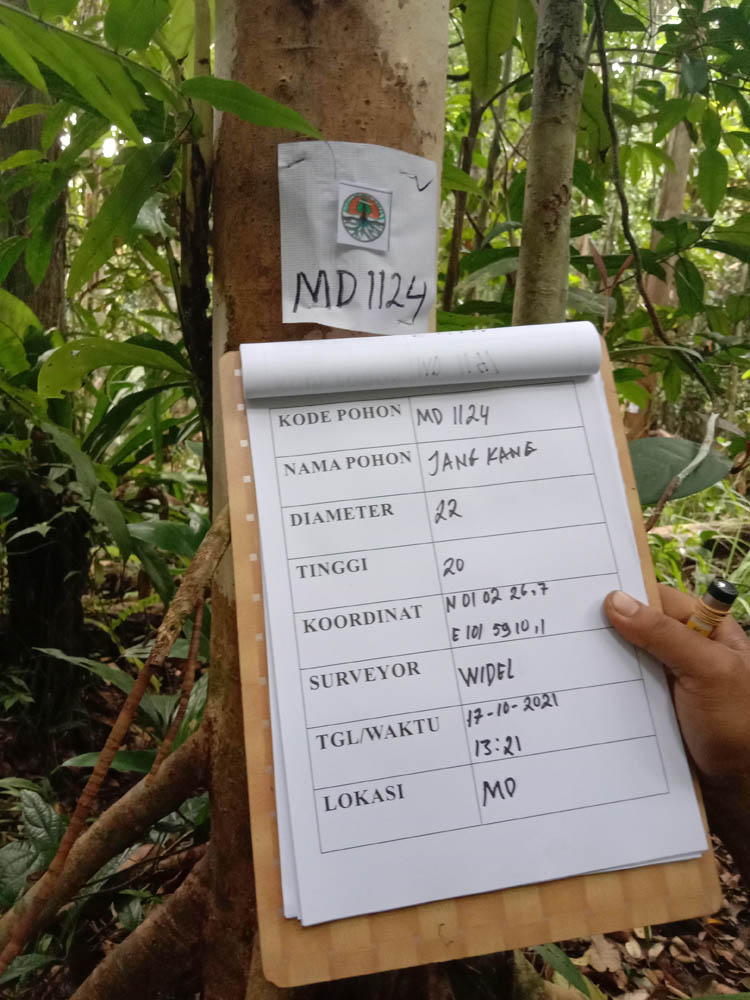 MD 1124
KODE POHON MD 1124
NAMA POHON JANG KANG
DIAMETER 22
TINGGI 20
KOORDINAT N 01 02 26,7
E 101 59 10,1
SURVEYOR WIDEL
TGL/WAKTU 17-10-2021
13:21
LOKASI MD